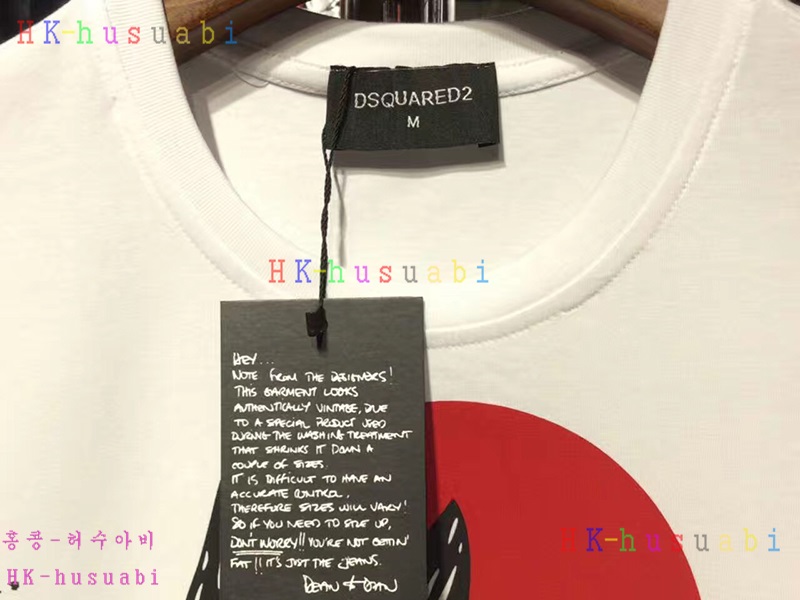 HK-husuabi
DSQUARED2
M
HK-husuabi
HEY...
NOTE FROM THE DESIGNERS!
THIS GARMENT LOOKS
AUTHENTICALLY VINTAGE, DUE
TO A SPECIAL PRODUCT USED
DURING THE WASHING TREATMENT
THAT SHRINKS IT DOWN A
COUPLE OF SIZES.
IT IS DIFFICULT TO HAVE AN
ACCURATE CONTROL,
THEREFORE SIZES WILL VARY!
SO IF YOU NEED TO SIZE UP,
DON'T WORRY!! YOU'RE NOT GETTIN'
FAT!! IT'S JUST THE JEANS.
DEAN & DAN
홍콩-허수아비
HK-husuabi
HK-husuabi